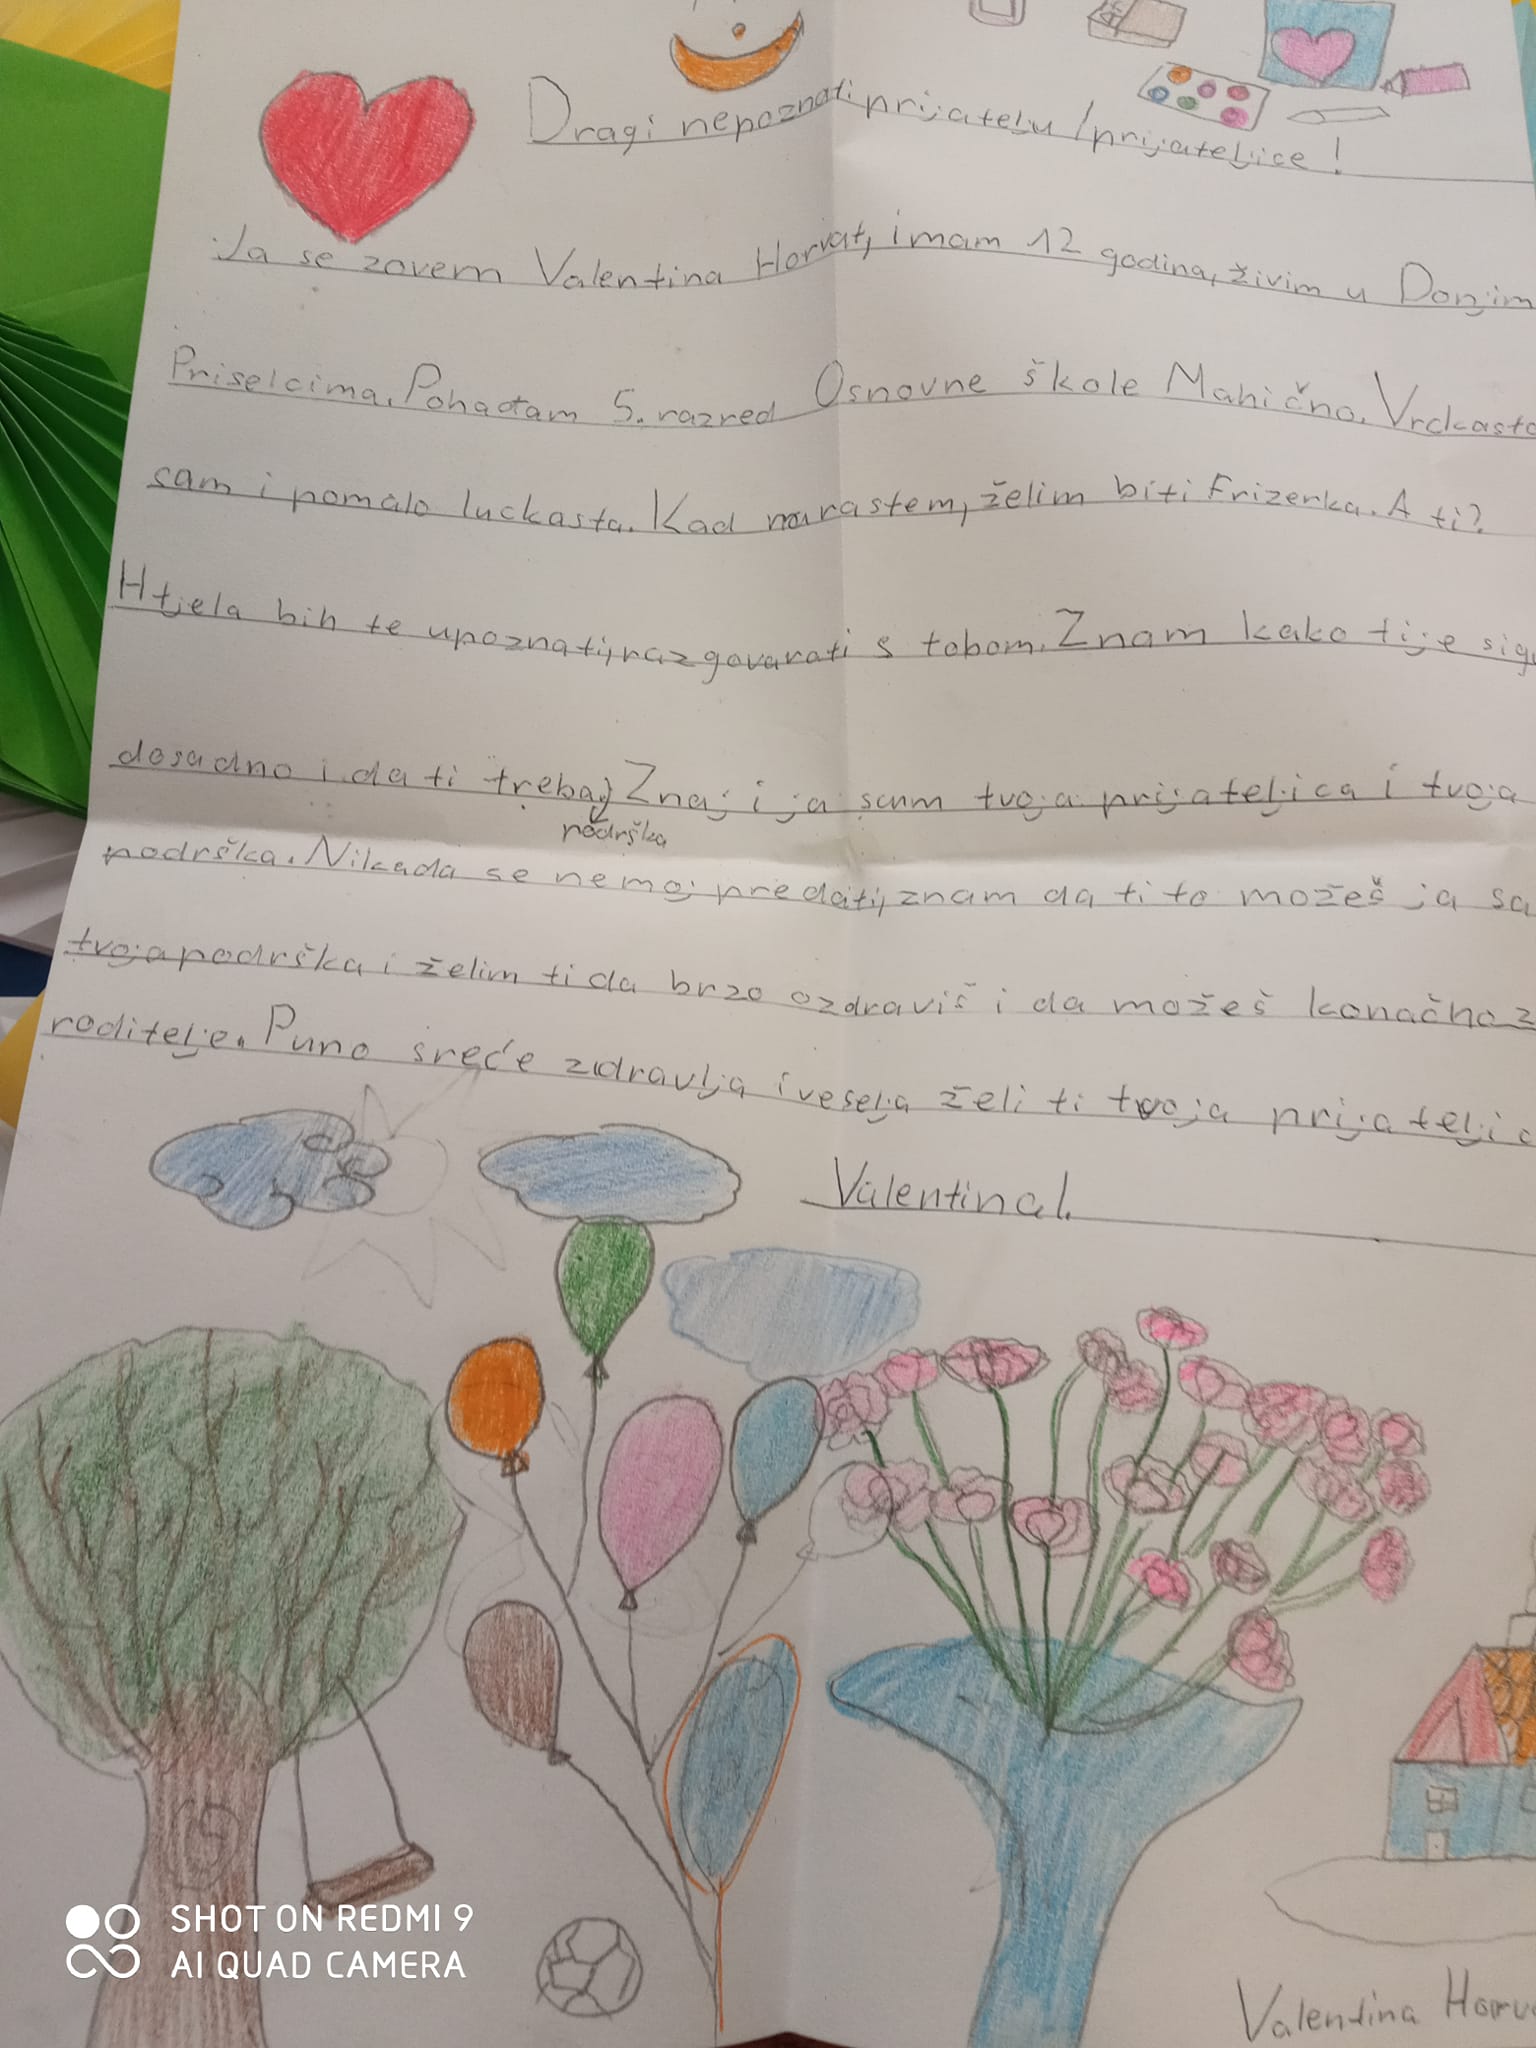 Dragi nepoznati prijatelju/prijateljice!
Ja se zovem Valentina Horvat, imam 12 godina, živim u Donjim
Priselcima. Pohađam 5. razred Osnovne škole Mahično. Vrckasta
sam i pomalo luckasta. Kad narastem, želim biti Frizerka. A ti?
Htjela bih te upoznati, razgovarati s tobom. Znam kako ti je
dosadno i da ti treba Znaj i ja sam tvoja prijateljica i tvoja
podrška
podrška. Nikada se nemoj predati, znam da ti to možeš ja sa
tvoja podrška i želim ti da brzo ozdraviš i da možeš konačno
roditelje. Puno sreće zdravlja i veselja želi ti tvoja prijateljic
Valentina!.
Valentina Horv
SHOT ON REDMI 9
AI QUAD CAMERA